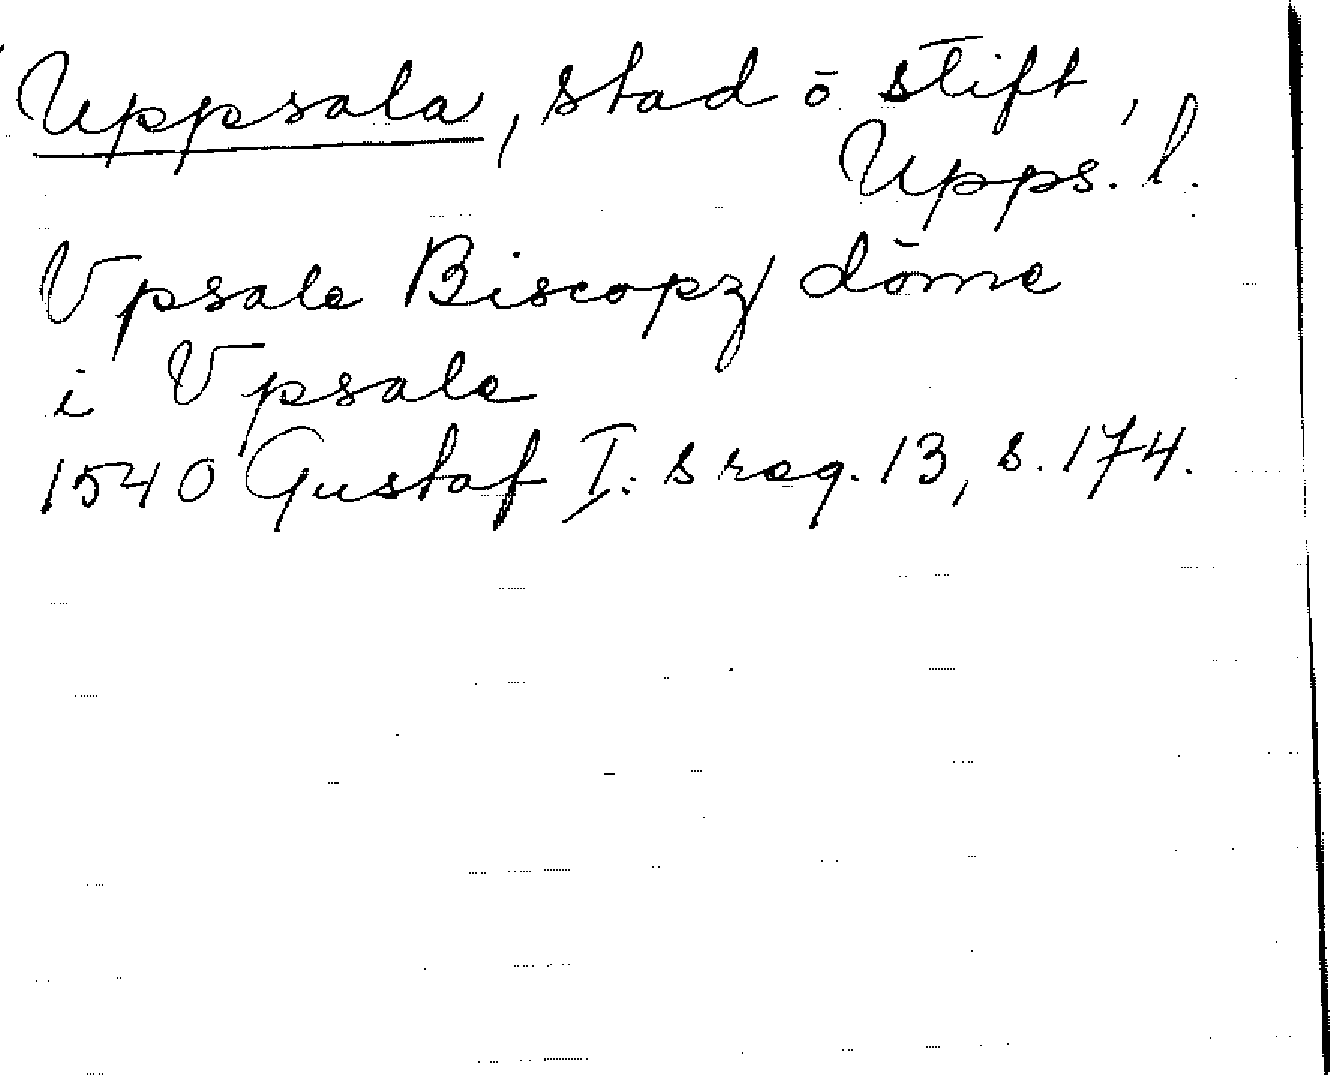 Uppsala, stad ō stift,
Upps. l.
Vpsale Biscopz/ döme
i Vpsale
1540 Gustaf I:s reg. 13, s. 174.